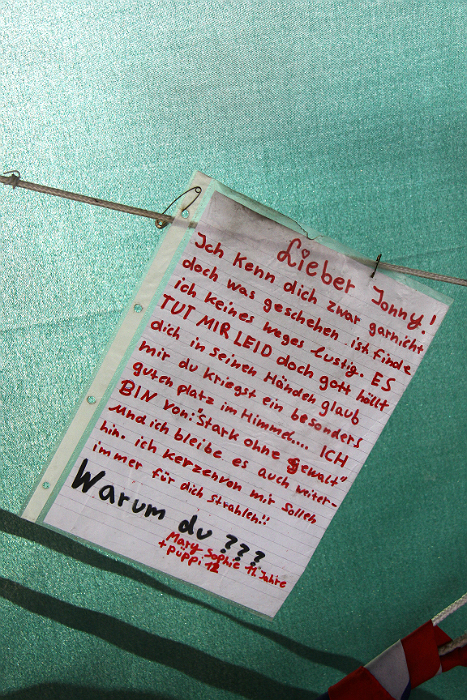 Lieber Jonny!
Ich Kenn dich zwar garnicht
doch was geschehen ist finde
ich keines weges lustig. ES
TUT MIR LEID doch gott hällt
dich in seinen Händen glaub
mir du kriegst ein besonders
guten platz im Himmel.... ICH
BIN von: "Stark ohne gewalt"
und ich bleibe es auch weiter-
hin. ich kerzen von mir sollen
immer für dich strahlen!!
Warum du ???
Mary Sophie 11 Jahre
+ püppi 12